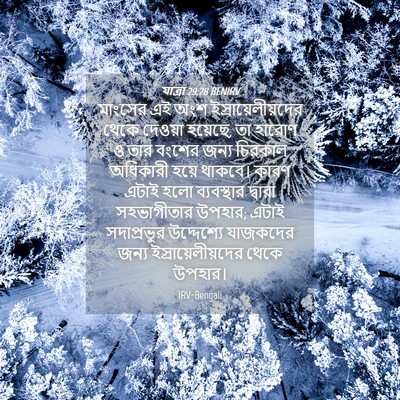 যাত্রা 29:28 BENIRV
মাংসের এই অংশ ইস্রায়েলীয়দের
থেকে দেওয়া হয়েছে, তা হারোণ
ও তার বংশের জন্য চিরকাল
অধিকারী হয়ে থাকবে। কারণ
এটাই হলো ব্যবস্থার দ্বারা
সহভাগীতার উপহার, এটাই
সদাপ্রভুর উদ্দেশ্যে যাজকদের
জন্য ইস্রায়েলীয়দের থেকে
উপহার।
IRV-Bengali